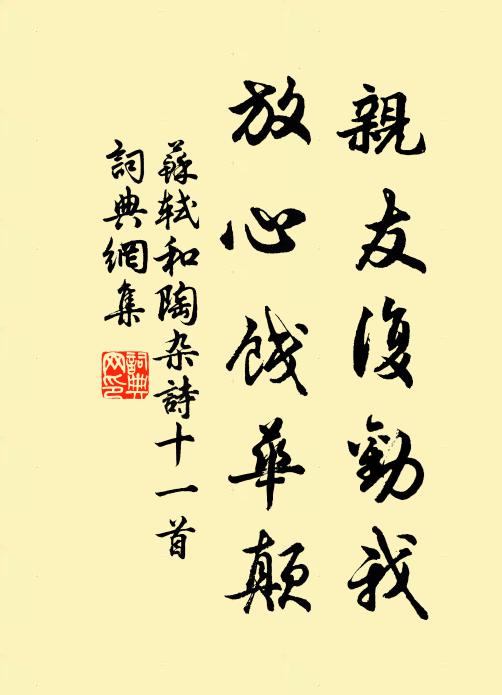 親友復勸我
放心餞華顛
蘇軾和陶杂詩十一首
詞典網集
詞典
网印